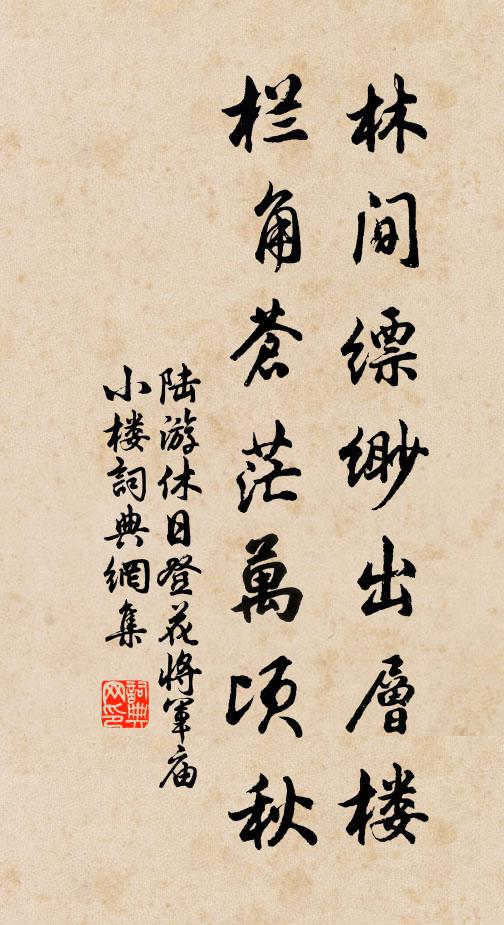 林间缥缈出层楼
栏角苍茫萬顷秋
陆游休日登花将军庙
小楼词典網集
词典网印